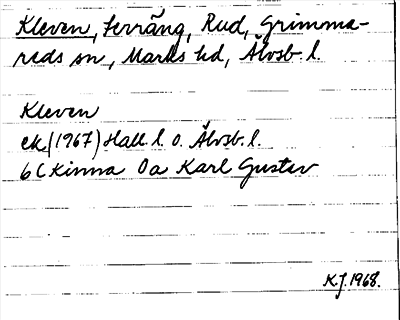 Kleven, terräng, Rud, Grimma-
reds sn, Marks hd, Älvsb. l.
Kleven
ek (1967) Hall. l. o. Älvsb. l.
6 C Kinna 0a Karl Gustav
K.J. 1968.